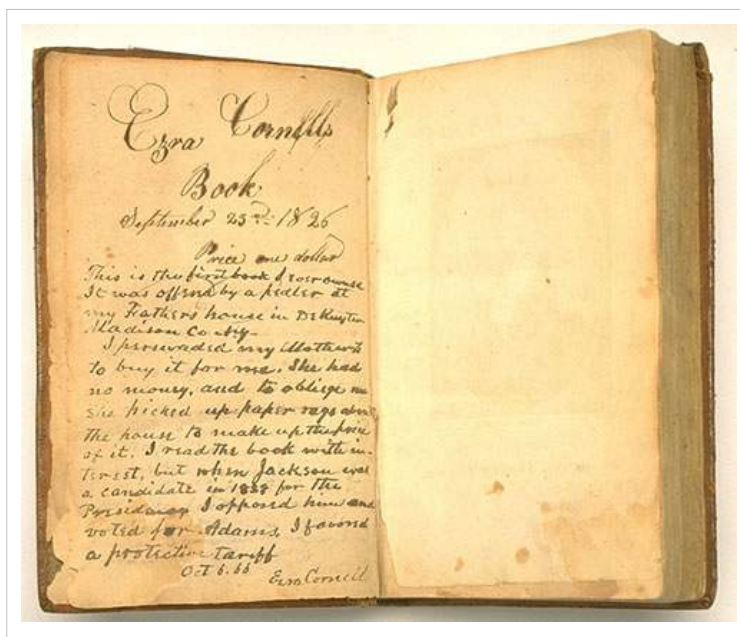 Ezra Cornells
Book
September 23rd 1826
Price one dollar
This is the first book I ever owned
It was offered by a pedler at
my Fathers house in DeRuyter
Madison Co Ny.
I perswaded my Mother
to buy it for me. She had
no money, and to oblige me
she picked up paper rags about
the house to make up the price
of it. I read the book with in-
terest, but when Jackson was
a candidate in 1828 for the
Presidency I opposed him and
voted for Adams, I favored
a protective tariff
Oct 6. 66
Ezra Cornell